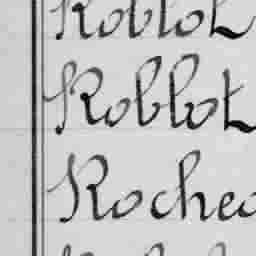 Roblot
Roblot
Roche